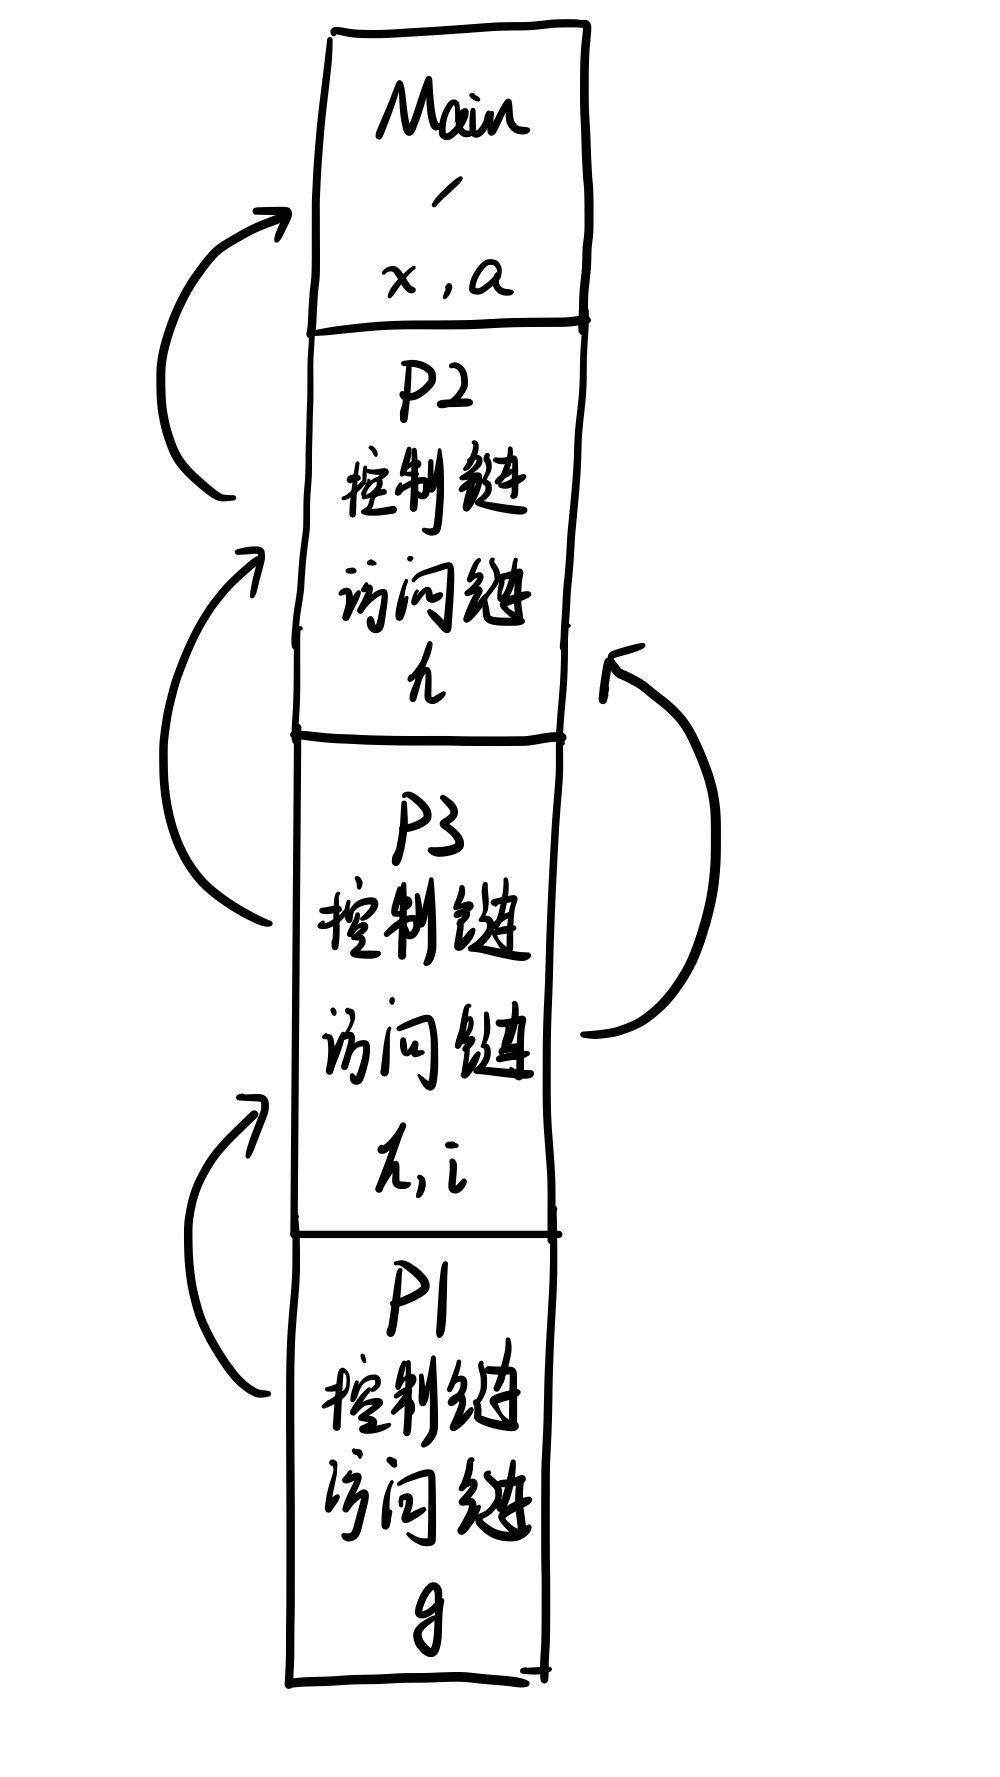 Main
x, a
P2
控制链
访问链
h
P3
控制链
访问链
h, i
P1
控制链
访问链
g